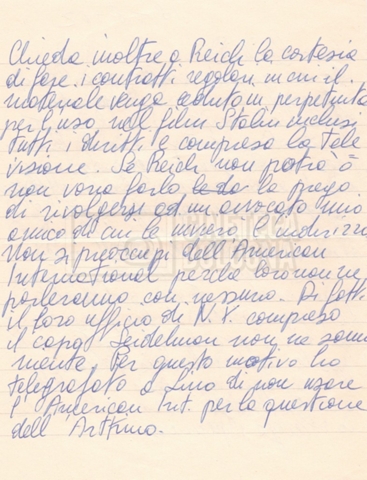 Chieda inoltre a Reich la cortesia
di fare i contratti regolari in cui il
materiale venga ceduto in perpetuità
per l'uso nel film Stalin inclusi
tutti i diritti e compresa la tele
visione. Se Reich non potrà o
non vorrà farlo la prego
di rivolgersi ad un avvocato mio
amico di cui le invierò l'indirizzo
Non si preoccupi dell'American
International perché loro non ne
parleranno con nessuno. Di fatti
il loro ufficio di N.Y. compreso
il capo Seidelman non ne sanno
niente. Per questo motivo ho
telegrafato a Lino di non usare
l'American Int. per la questione
dell'Artkino.